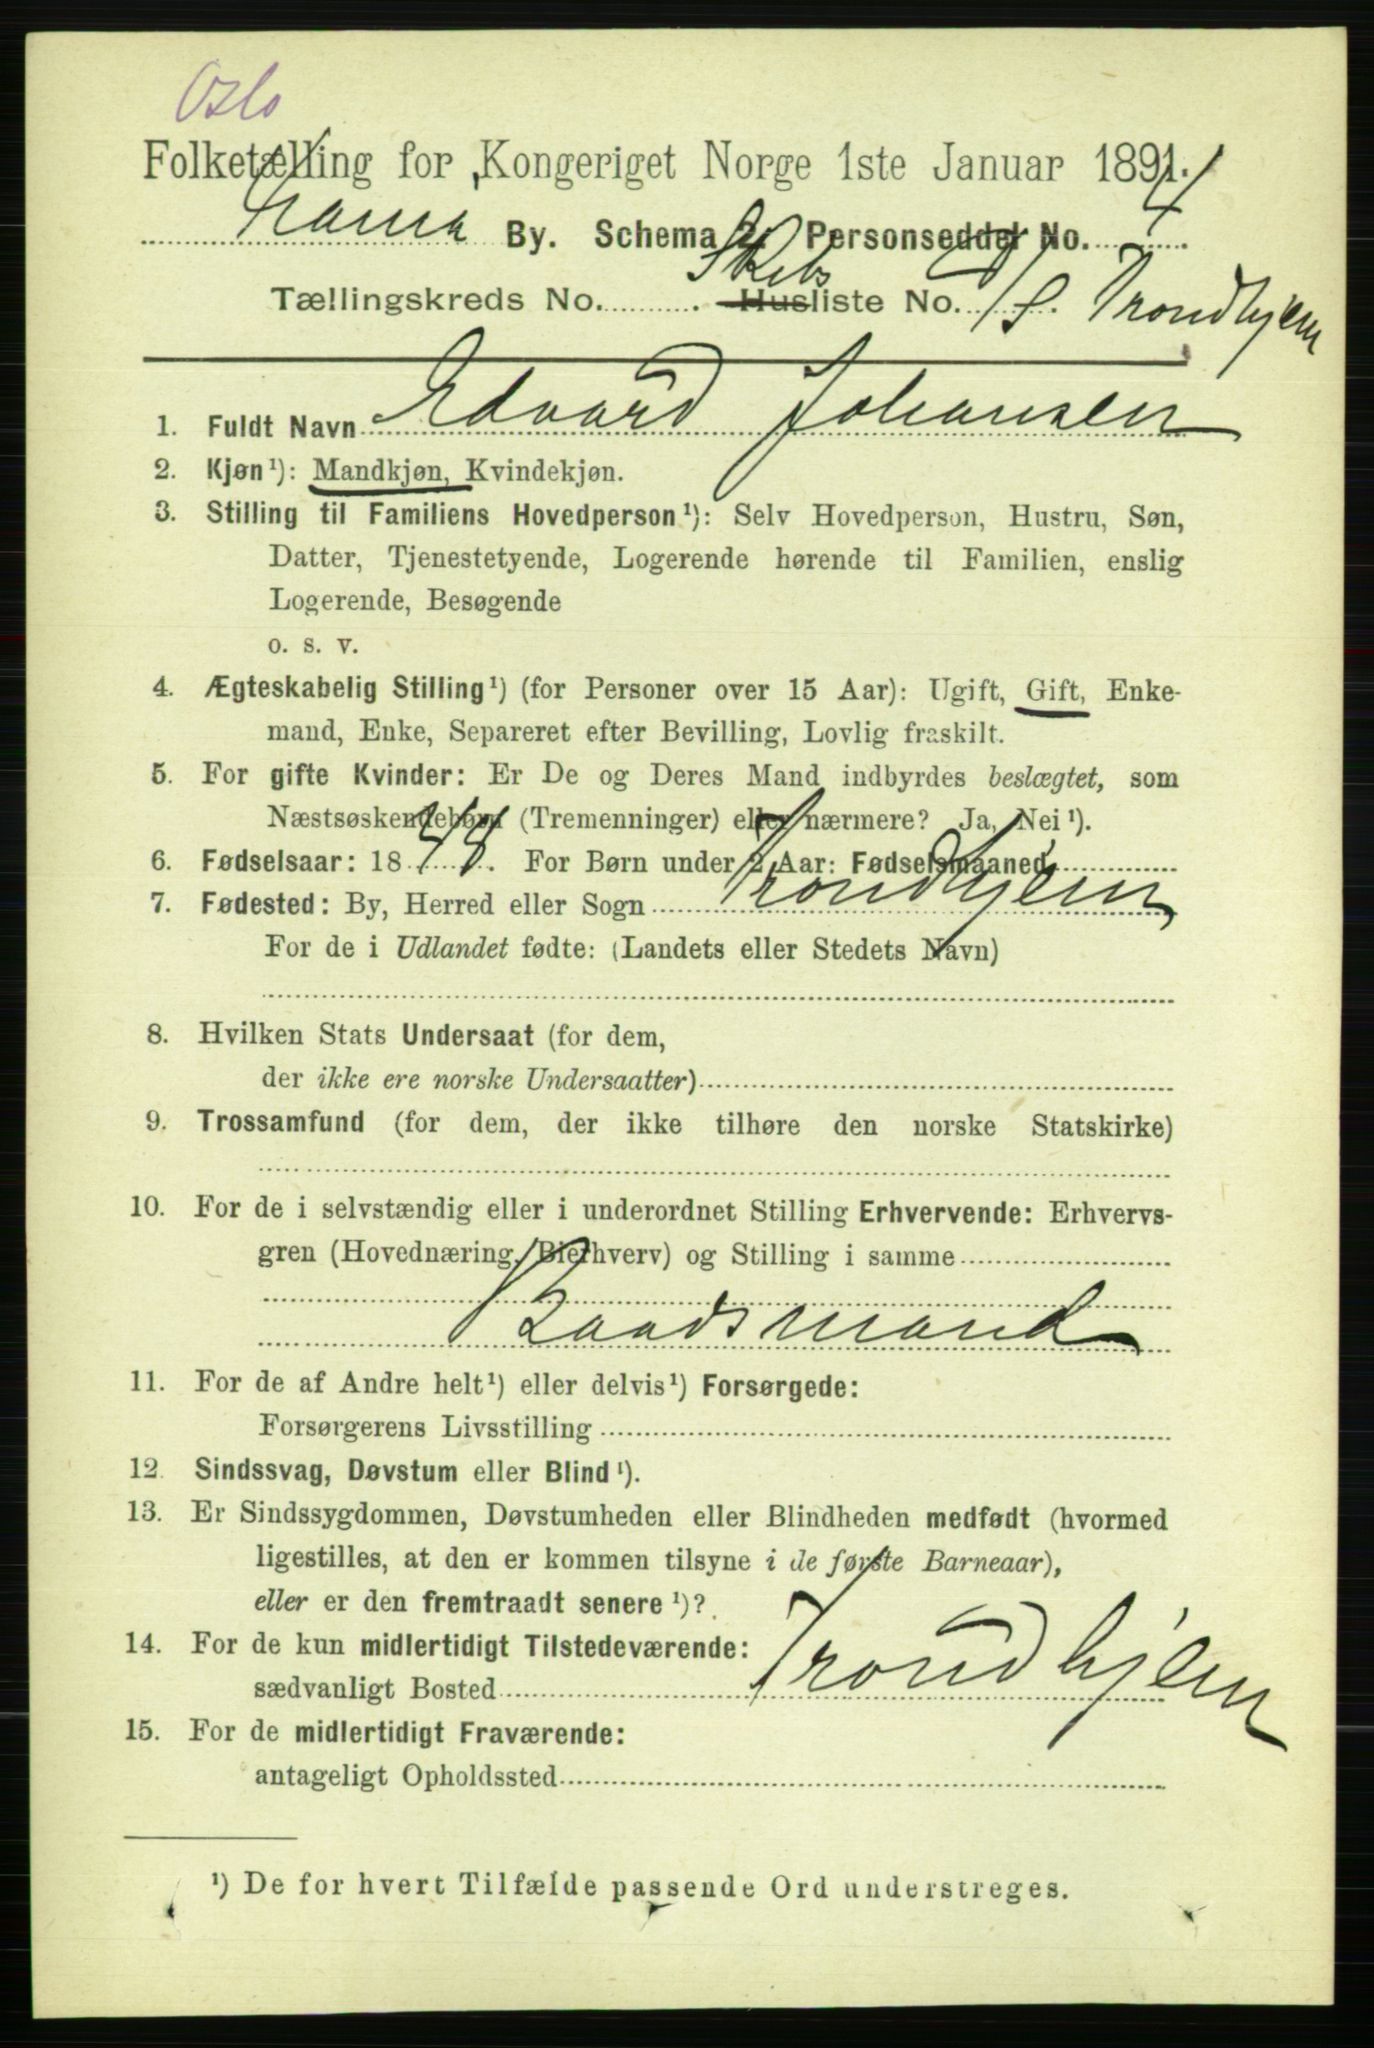 Oslo
Folketælling for Kongeriget Norge 1ste Januar 1891.
By. Schema 2. Personseddel No. 4
Tællingskreds No. Skibs Husliste No. S. Trondhjem
1. Fuldt Navn Edvard Johansen
2. Kjøn¹): Mandkjøn, Kvindekjøn.
3. Stilling til Familiens Hovedperson¹): Selv Hovedperson, Hustru, Søn,
Datter, Tjenestetyende, Logerende hørende til Familien, enslig
Logerende, Besøgende
o. s. v.
4. Ægteskabelig Stilling¹) (for Personer over 15 Aar): Ugift, Gift, Enke-
mand, Enke, Separeret efter Bevilling, Lovlig fraskilt.
5. For gifte Kvinder: Er De og Deres Mand indbyrdes beslægtet, som
Næstsøskendebørn (Tremenninger) eller nærmere? Ja, Nei¹).
6. Fødselsaar: 1844. For Børn under 2 Aar: Fødselsmaaned
7. Fødested: By, Herred eller Sogn Trondhjem
For de i Udlandet fødte: (Landets eller Stedets Navn)
8. Hvilken Stats Undersaat (for dem,
der ikke ere norske Undersaatter)
9. Trossamfund (for dem, der ikke tilhøre den norske Statskirke)
10. For de i selvstændig eller i underordnet Stilling Erhvervende: Erhvervs-
gren (Hovednæring, Bierhverv) og Stilling i samme
Baadsmand
11. For de af Andre helt¹) eller delvis¹) Forsørgede:
Forsørgerens Livsstilling
12. Sindssvag, Døvstum eller Blind¹).
13. Er Sindssygdommen, Døvstumheden eller Blindheden medfødt (hvormed
ligestilles, at den er kommen tilsyne i de første Barneaar),
eller er den fremtraadt senere¹)?
14. For de kun midlertidigt Tilstedeværende:
sædvanligt Bosted Trondhjem
15. For de midlertidigt Fraværende:
antageligt Opholdssted
¹) De for hvert Tilfælde passende Ord understreges.